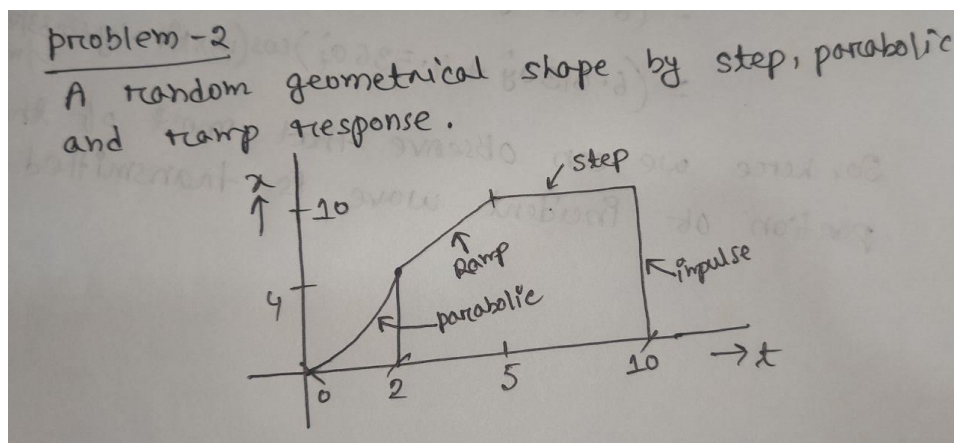 problem-2
A random geometrical shape by step, parabolic
and ramp response.
x
10
step
Ramp
impulse
4
parabolic
0
2
5
10
t